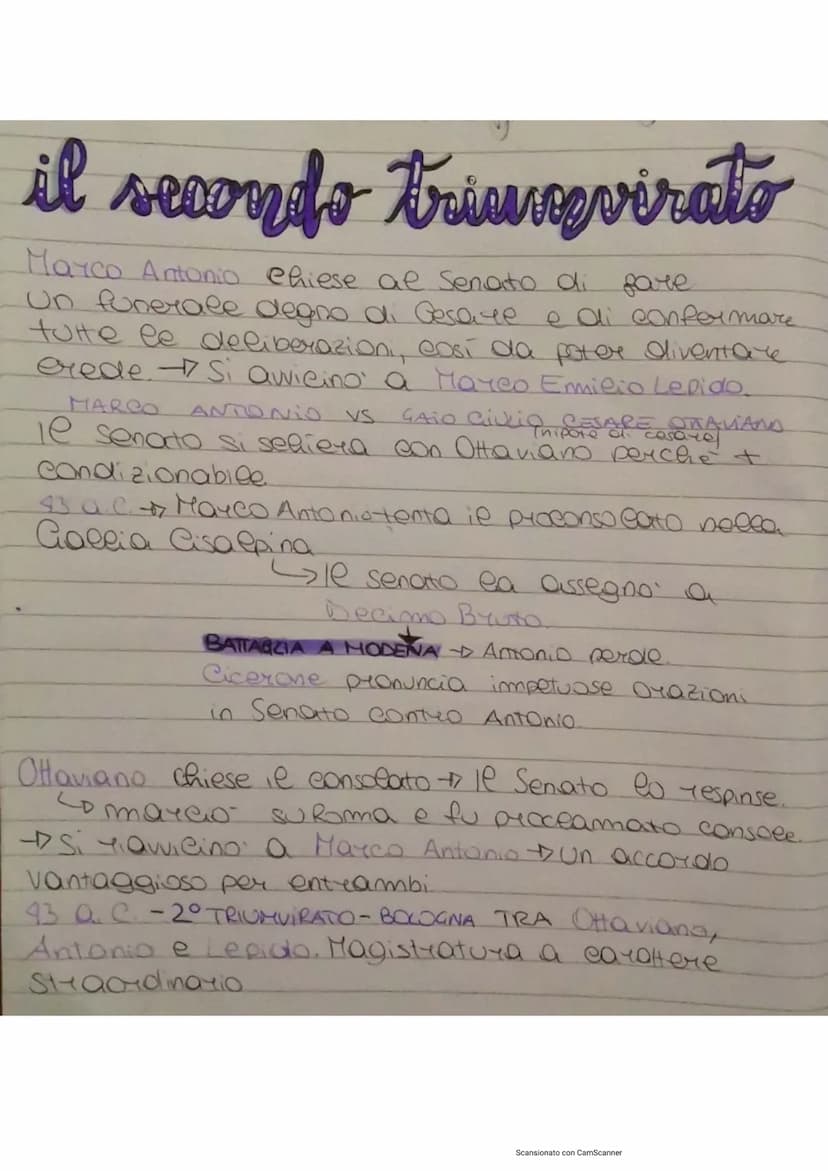 il secondo triumvirato
Marco Antonio chiese al Senato di fare
un funerale degno di Cesare e di confermare
tutte le deliberazioni, così da poter diventare
erede. → Si avvicinò a Marco Emilio Lepido.
MARCO ANTONIO VS GAIO GIULIO CESARE OTTAVIANO
(nipote di cesare)
Il senato si schiera con Ottaviano perché +
condizionabile
43 a.C → Marco Antonio tenta il proconsolato nella
Gallia Cisalpina
↳ Il senato la assegnò a
Decimo Bruto
BATTAGLIA A MODENA → Antonio perde
Cicerone pronuncia impetuose orazioni
in Senato contro Antonio
Ottaviano chiese il consolato → Il Senato lo respinse.
↳ marciò su Roma e fu proclamato console.
→ Si riavvicinò a Marco Antonio → un accordo
vantaggioso per entrambi
43 a.C. - 2° TRIUMVIRATO - BOLOGNA TRA Ottaviano,
Antonio e Lepido. Magistratura a carattere
straordinario
Scansionato con CamScanner